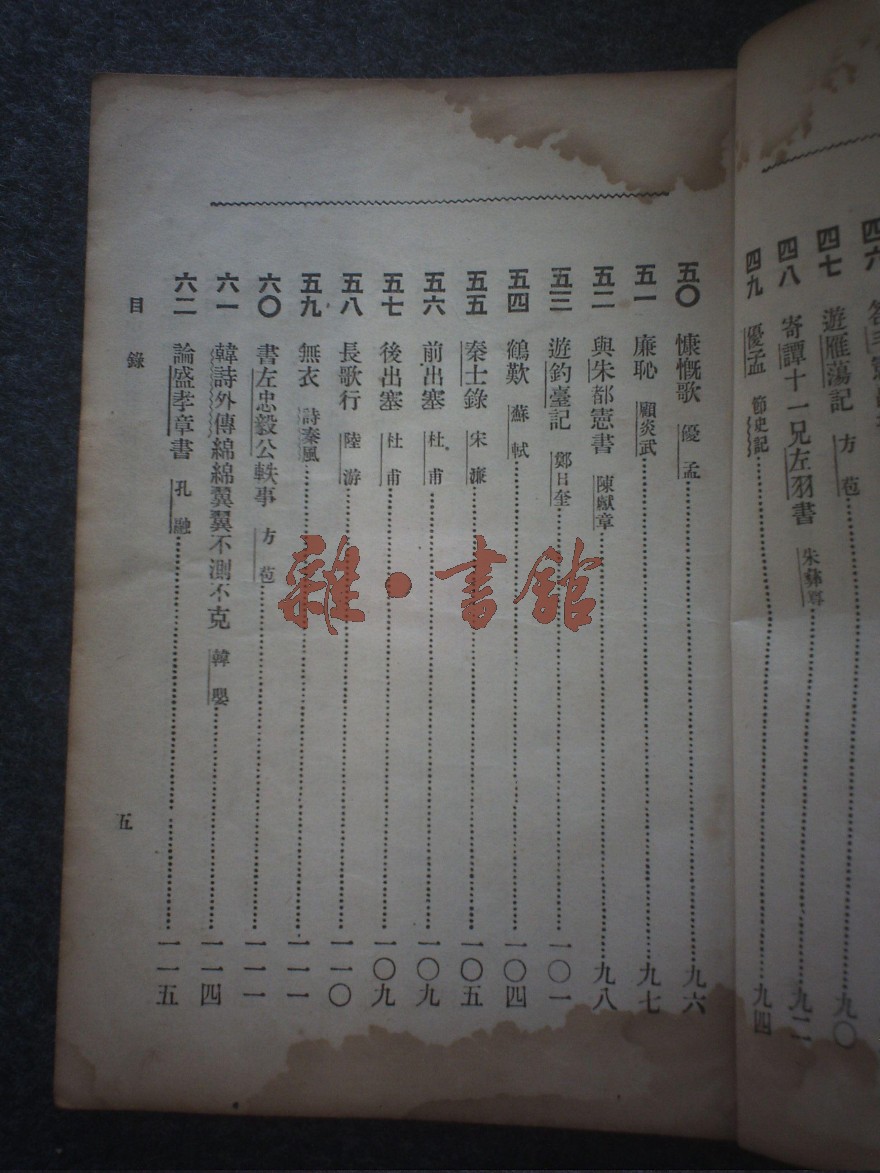 四六
四七 遊雁蕩記 方苞 九〇
四八 寄譚十一兄左羽書 朱彝尊 九二
四九 優孟 節史記 九四
五〇 慷慨歌 優孟 九六
五一 廉恥 顧炎武 九七
五二 與朱都憲書 陳獻章 九八
五三 遊釣臺記 鄭日奎 一〇一
五四 鶴歎 蘇軾 一〇四
五五 秦士錄 宋濂 一〇五
五六 前出塞 杜甫 一〇九
五七 後出塞 杜甫 一〇九
五八 長歌行 陸游 一一〇
五九 無衣 詩秦風 一一一
六〇 書左忠毅公軼事 方苞 一一一
六一 韓詩外傳綿綿翼翼不測不克 韓嬰 一一四
六二 論盛孝章書 孔融 一一五
目錄
五
雜·書館